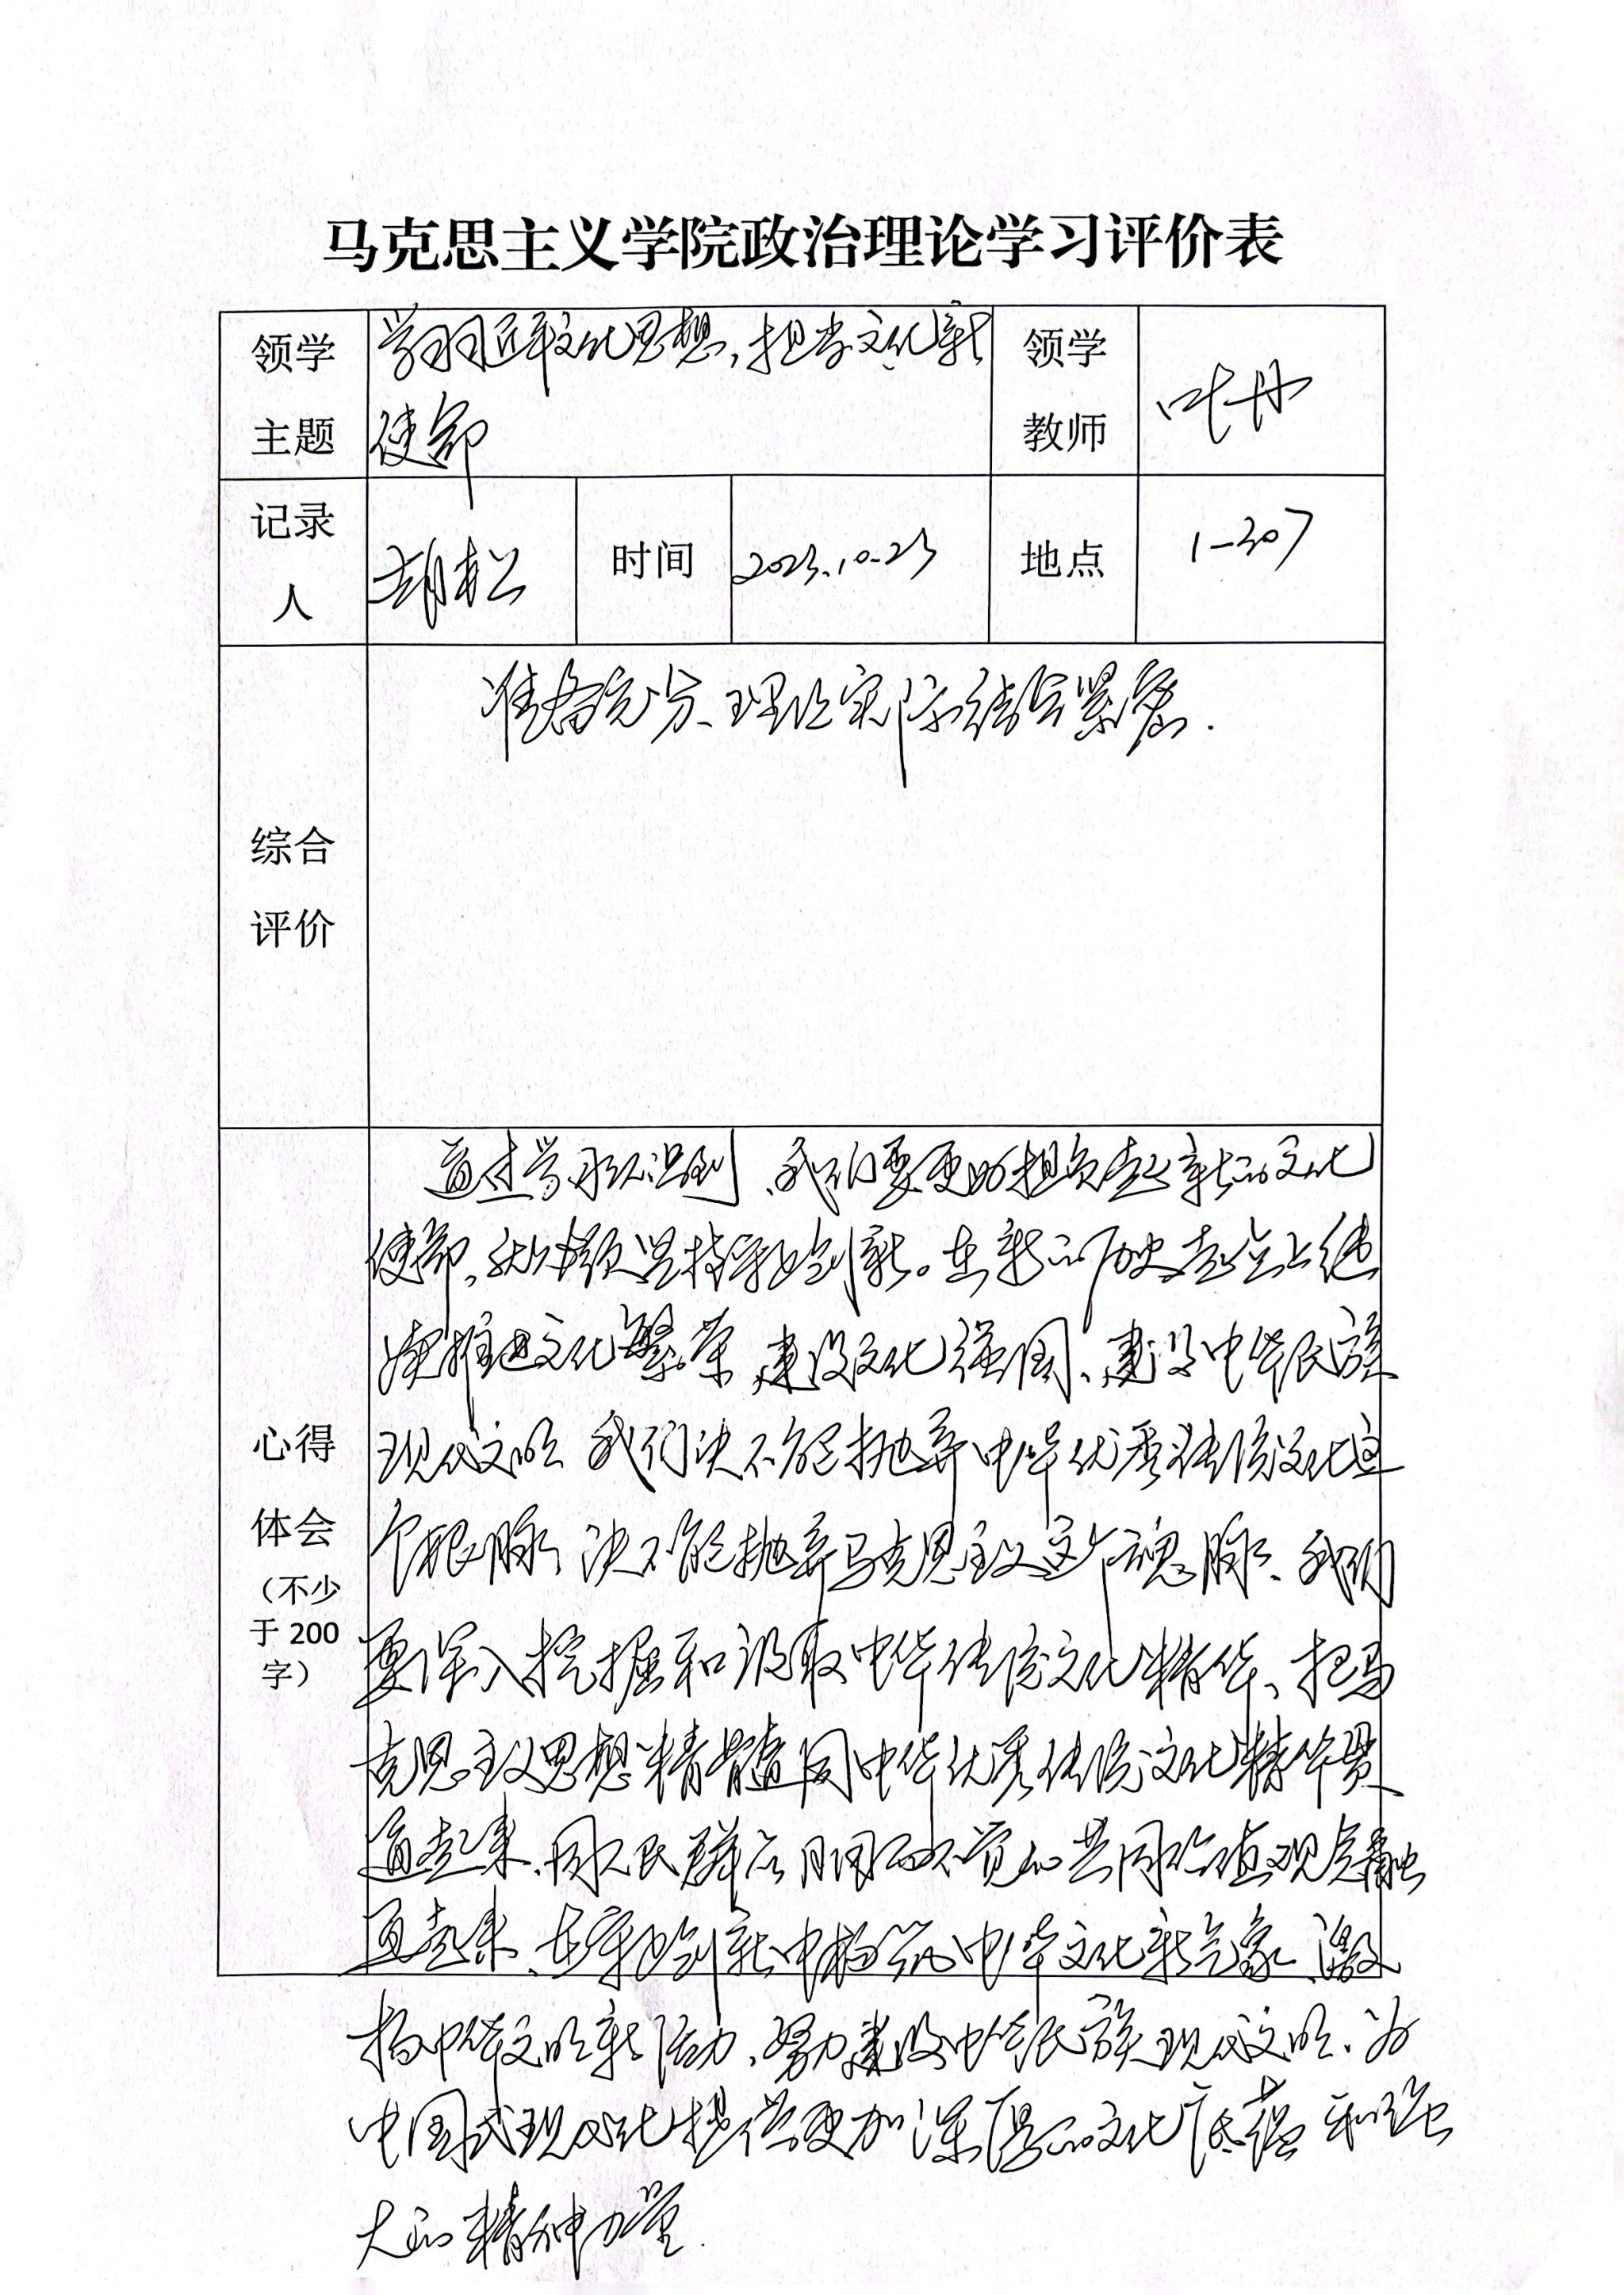 马克思主义学院政治理论学习评价表
领学
主题
学习习近平文化思想，担当文化新
使命
领学
教师
叶丹
记录
人
胡松
时间
2023.10.23
地点
1-307
综合
评价
准备充分、理论实际结合紧密.
心得
体会
（不少
于 200
字）
通过学习认识到、我们要更好担负起新的文化
使命，就必须坚持守正创新。在新的历史起点上继
续推进文化繁荣、建设文化强国、建设中华民族
现代文明 我们决不能抛弃中华优秀传统文化这
个根脉、决不能抛弃马克思主义这个魂脉、我们
要深入挖掘和汲取中华传统文化精华、把马
克思主义思想精髓同中华优秀传统文化精华贯
通起来、同人民群众日用而不觉的共同价值观念融
通起来、在守正创新中构筑中华文化新气象、激
扬中华文明新活力、努力建设中华民族现代文明、为
中国式现代化提供更加深厚的文化底蕴和强
大的精神力量.